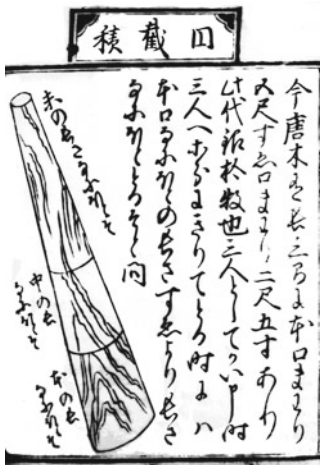 円截積
今唐木長三間本口まはり
五尺すゑ口まはり二尺五寸あり
此代銀拾枚也三人としてかい申時
三人へきりてとる時にハ
本口なにほとの長さすゑより長さ
なにほとととるそと問
末の長さなにほとそ
中の長
なにほとそ
本の長
なにほとそ